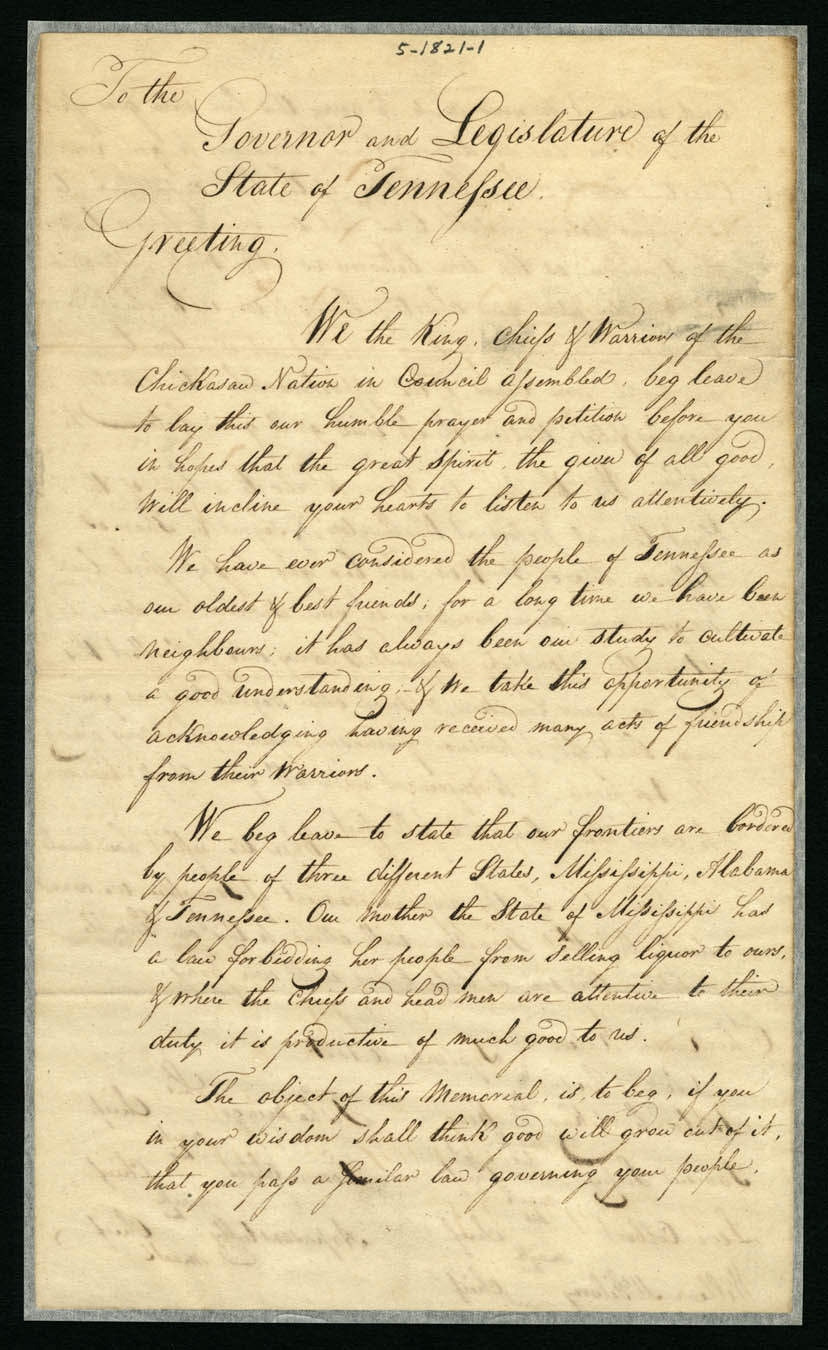 5-1821-1
To the
Governor and Legislature of the
State of Tennessee.
Greeting.
We the King, Chiefs & Warriors of the
Chickasaw Nation in Council assembled, beg leave
to lay this our humble prayer and petition before you
in hopes that the great Spirit, the giver of all good,
Will incline your hearts to listen to us attentively.
We have ever considered the people of Tennessee as
our oldest & best friends; for a long time we have been
neighbours; it has always been our study to cultivate
a good understanding;- & We take this opportunity of
acknowledging having received many acts of friendship
from their Warriors.
We beg leave to state that our frontiers are bordered
by people of three different States, Mississippi, Alabama
& Tennessee. Our mother the State of Mississippi has
a law forbedding her people from selling liquor to ours,
& where the Chiefs and head men are attentive to their
duty it is productive of much good to us.
The object of this Memorial, is, to beg, if you
in your wisdom shall think good will grow out of it,
that you pass a similar law governing your people.